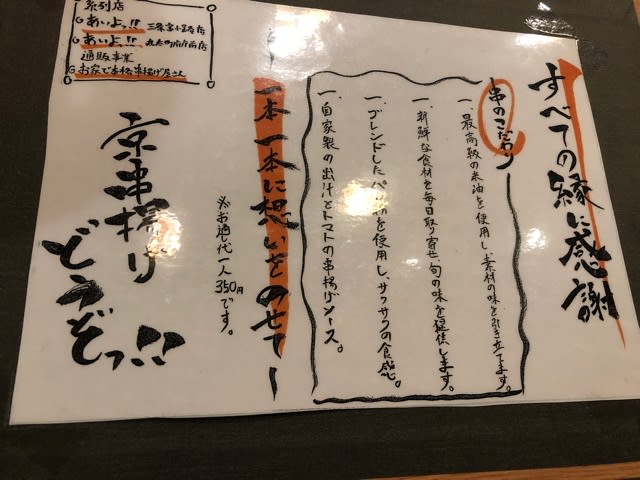 すべての縁に感謝
串のこだわり
一、最高級の米油を使用し、素材の味を引き立てます。
一、新鮮な食材を毎日取り寄せ、旬の味を提供します。
一、ブレンドしたパン粉を使用し、サクサクの食感。
一、自家製の出汁とトマトの串揚げソース。
〜一本一本に想いをのせて〜
※お通し代一人350円です。
京串揚げ
どうぞっ!!
系列店
あいよっ!!
あいよっ!!
通販事業
お家で本格串揚げ屋さん